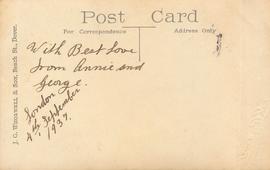 Post Card
For Correspondence
Address Only
With Best Love
from Annie and
George.
London
4th September
1937.
J. G. & Son, Beach St., Dover.